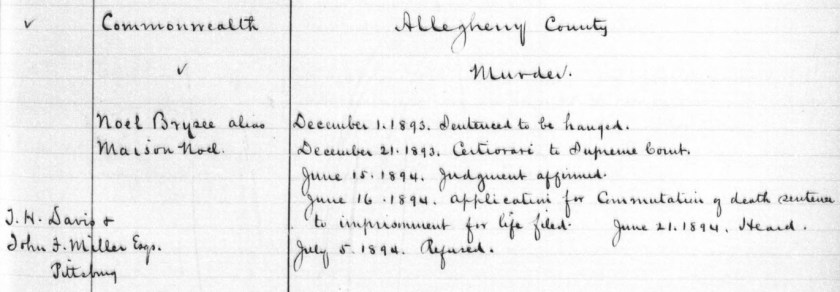 ✓ Commonwealth Allegheny County
v Murder.
Noel Brysee alias December 1. 1893. Sentenced to be hanged.
Maison Noel. December 21. 1893. Certiorari to Supreme Court.
June 15. 1894. Judgment affirmed.
June 16. 1894. Application for Commutation of death sentence
to imprisonment for life filed. June 21. 1894. Heard.
J. H. Davis &
John F. Miller Esqs. July 5. 1894. Refused.
Pittsburg